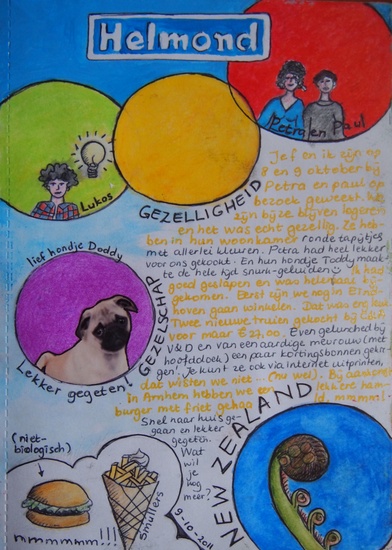 Helmond
Petra en Paul
Lukas
GEZELLIGHEID
Jef en ik zijn op
8 en 9 oktober bij
Petra en paul op
bezoek geweest. We
zijn bijze blijven logeren
en het was echt gezellig. Ze heb-
ben in hun woonkamer ronde tapijtjes
met allerlei kleuren. Petra had heel lekker
voor ons gekookt. En hun hondje Toddy maak
te de hele tijd snurk-geluiden. Ik had
goed geslapen en was helemaal bij-
gekomen. Eerst zijn we nog in Eind-
hoven gaan winkelen. Dat was erg leuk
Twee nieuwe truien gekocht bij C&A
voor maar € 27,00. Even geluncht bij
V&D en van een aardige mevrouw (met
hoofddoek) een paar kortingsbonnen gekre-
gen! Je kunt ze ook via internet uitprinten,
dat wisten we niet... (nu wel). Bij
in Arnhem hebben we een lekkere ham-
burger met friet gehad
Snel naar huis ge-
gaan en lekker
gegeten.
Wat
wil
je
nog
meer?
lief hondje Doddy
GEZELSCHAP
Lekker gegeten!
(niet-
biologisch)
mmmmmmm!!!
smullers
9-10-2011
NEW ZEALAND